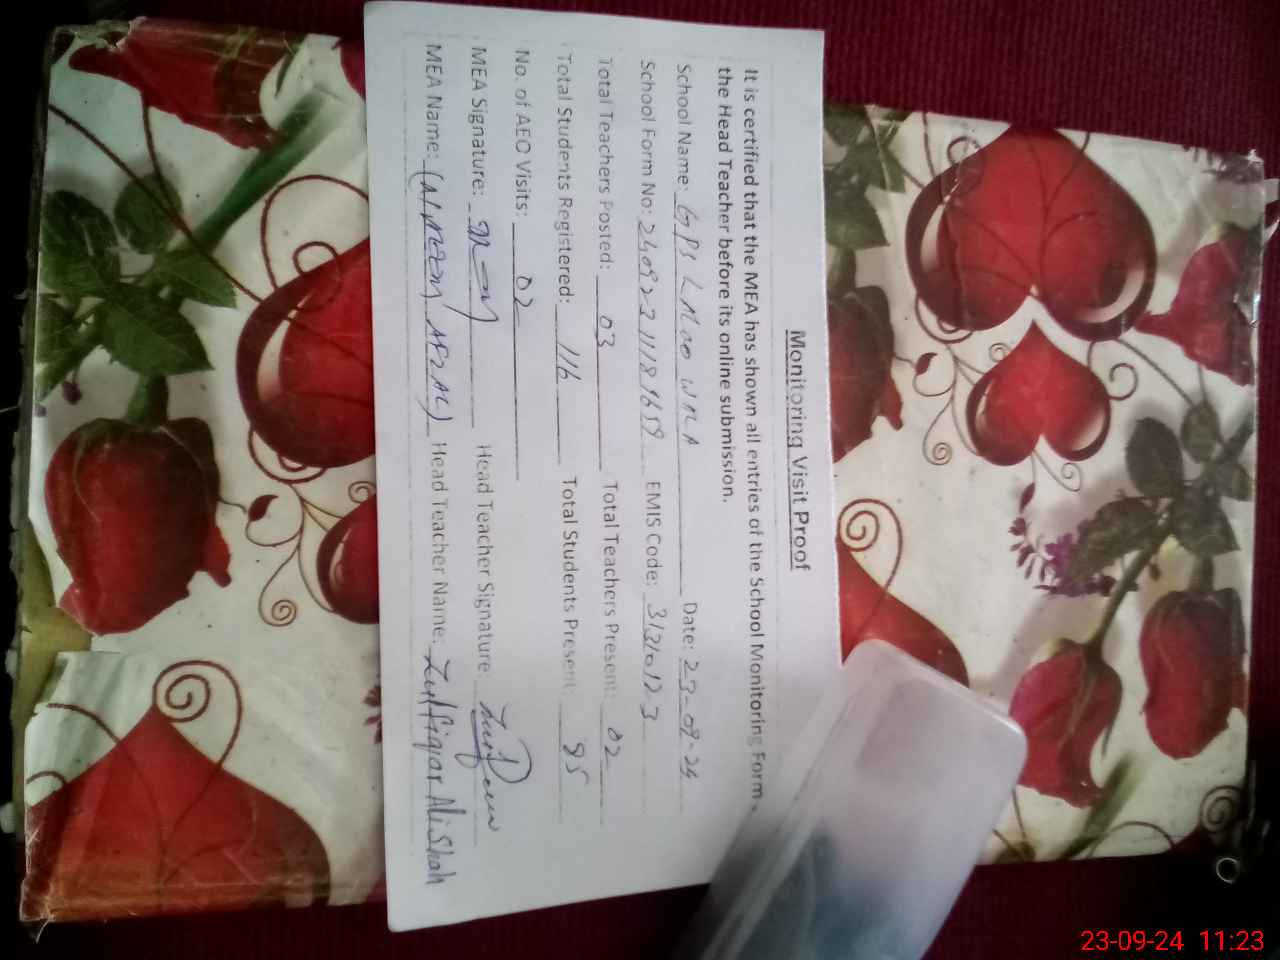 Monitoring Visit Proof
It is certified that the MEA has shown all entries of the School Monitoring Form
the Head Teacher before its online submission.
School Name: GPS LALOO WALA Date: 23-09-24
School Form No: EMIS Code: 31310123
Total Teachers Posted: 03 Total Teachers Present: 02
Total Students Registered: 116 Total Students Present: 95
No. of AEO Visits: 02
MEA Signature: Head Teacher Signature:
MEA Name: AFZAL) Head Teacher Name: Zulfiqar Ali Shah
23-09-24 11:23